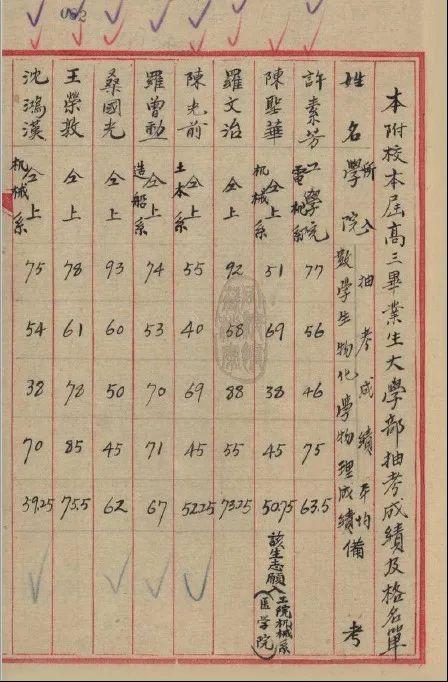 082
本附校本屆高三畢業生大學部抽考成績及格名單
姓名 所入學院 抽考成績 數學 生物 化學 物理 平均成績 備考
許素芳 工學院電機系 77 56 46 75 63.5
陳聖華 仝上机械系 51 69 38 45 50.75 該生志願入工院机械系 医学院
羅文治 仝上 92 58 88 55 73.25
陳光前 仝上土木系 55 40 69 45 52.25
羅曾勳 仝上造船系 74 53 70 71 67
桑國光 仝上 93 60 50 45 62
王榮敦 仝上 78 61 78 85 75.5
沈鴻漢 仝上机械系 75 54 38 70 59.25